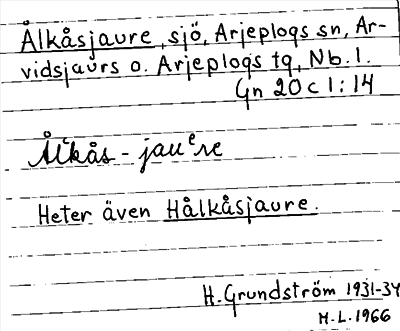 Ålkåsjaure, sjö, Arjeplogs sn, Ar-
vidsjaurs o. Arjeplogs tg, Nb. l.
Gn 20 c 1:14
Ålkås - jauᵉre
Heter även Hålkåsjaure.
H. Grundström 1931-34
H.L. 1966